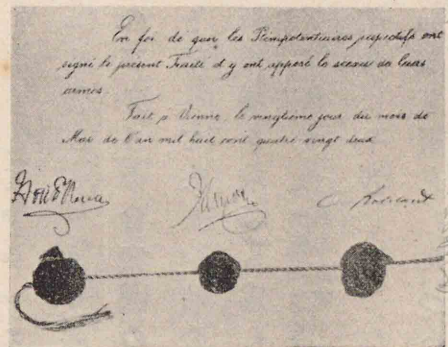 En foi de quoi les Plénipotentiaires respectifs ont
signé le présent Traité et y ont apposé le sceau de leurs
armes.
Fait à Vienne, le vingtième jour du mois de
Mai de l'an mil huit cent quatre vingt deux